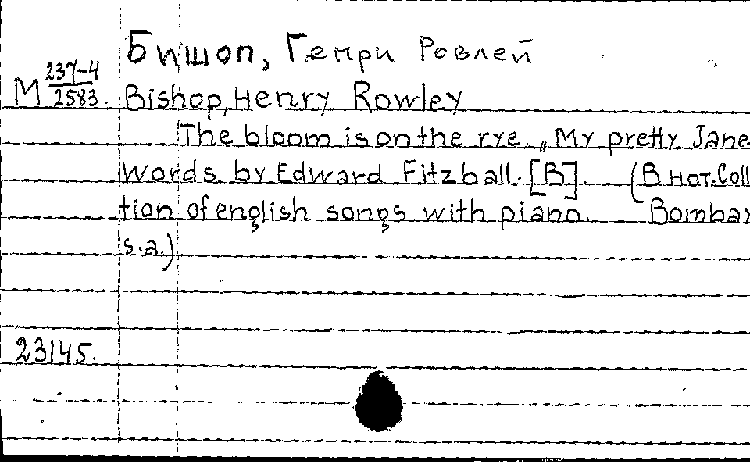 Бишоп, Генри Ровлей
М 237-4/2583. Bishop, Henry Rowley
The bloom is on the rye. „My pretty Jane
words by Edward Fitzball. [B]. (В нот. Coll
tion of english songs with piano. Bombay
s.a.).
23145.